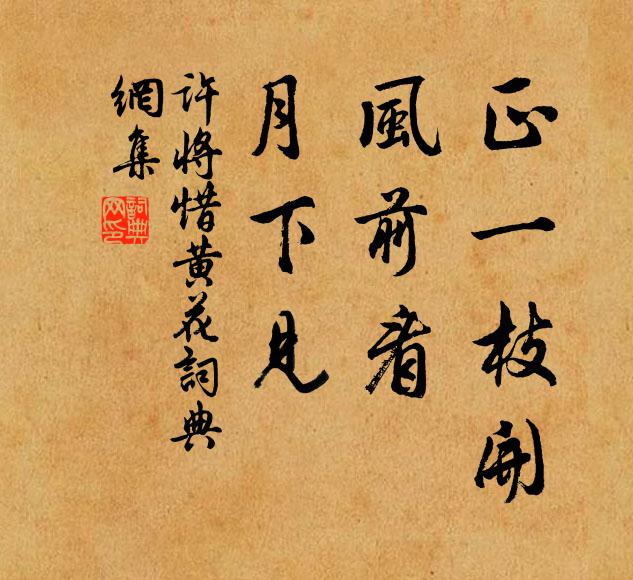 正一枝開
風前看
月下見
許將惜黃花詞典
網集
詞典
网印